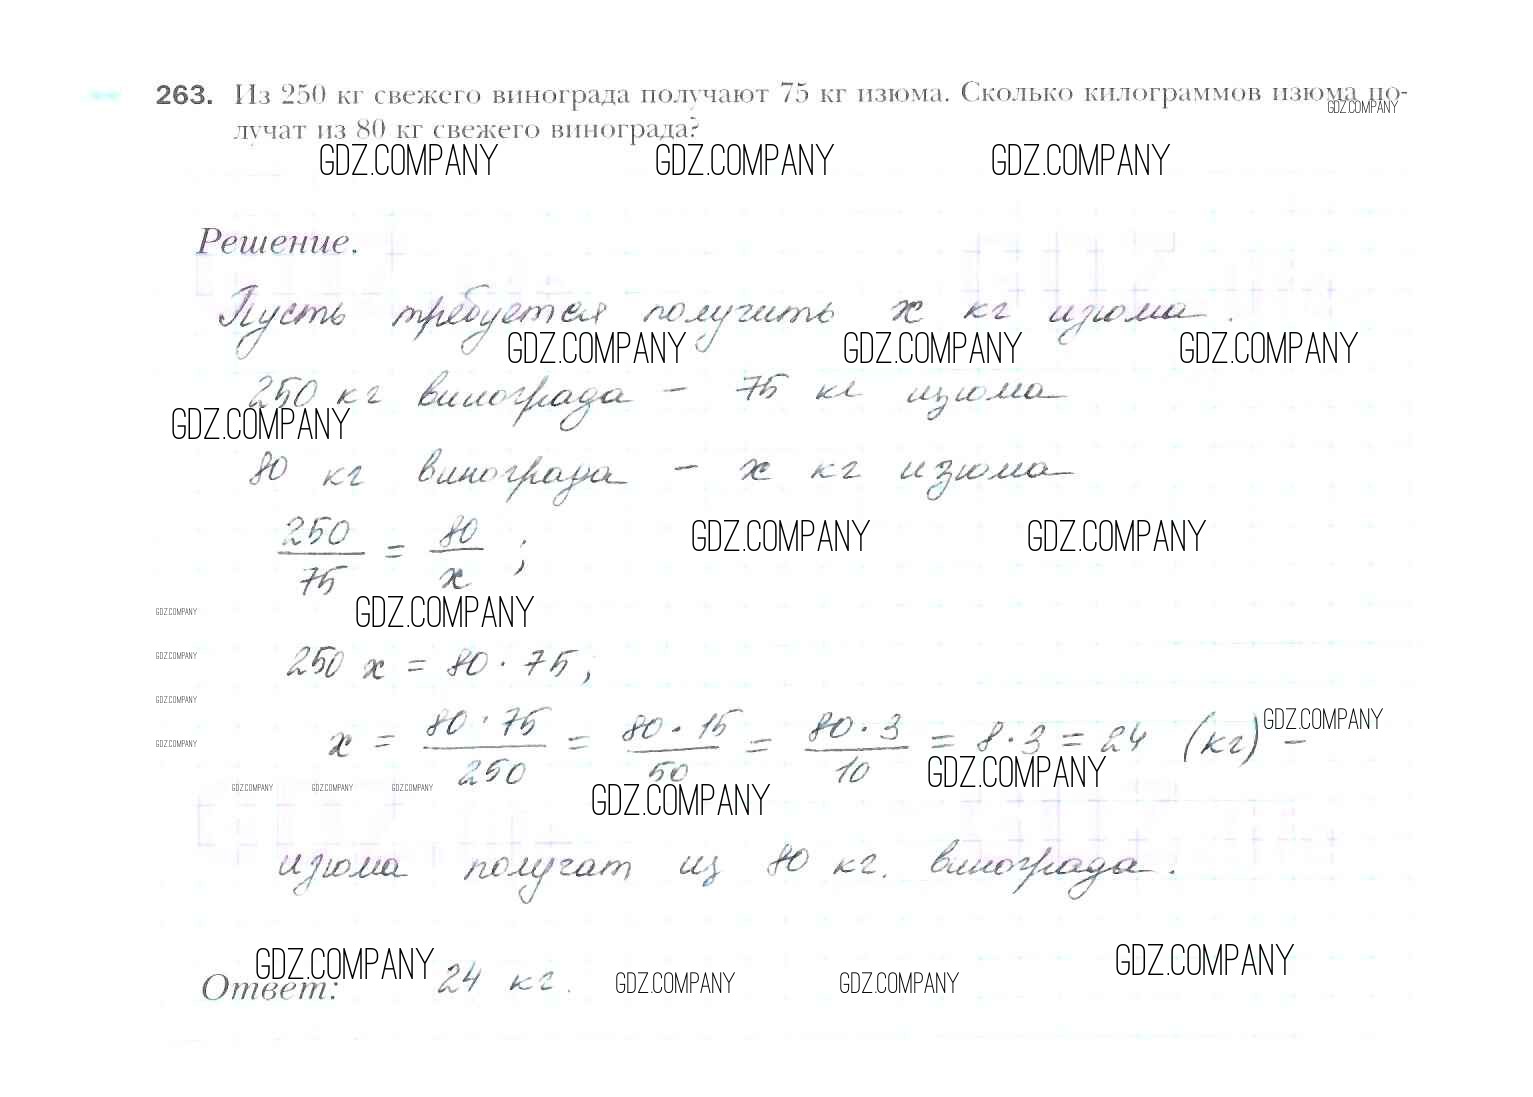 263. Из 250 кг свежего винограда получают 75 кг изюма. Сколько килограммов изюма по-
GDZ.COMPANY
лучат из 80 кг свежего винограда?
GDZ.COMPANY GDZ.COMPANY GDZ.COMPANY
Решение.
Пусть требуется получить x кг изюма.
GDZ.COMPANY GDZ.COMPANY GDZ.COMPANY
250 кг винограда – 75 кг изюма
GDZ.COMPANY
80 кг винограда – x кг изюма
250/75 = 80/x ;
GDZ.COMPANY GDZ.COMPANY
GDZ.COMPANY GDZ.COMPANY
GDZ.COMPANY
250 x = 80 · 75;
GDZ.COMPANY
x = 80 · 75/250 = 80 · 15/50 = 80 · 3/10 = 8 · 3 = 24 (кг) –
GDZ.COMPANY
GDZ.COMPANY
GDZ.COMPANY
GDZ.COMPANY GDZ.COMPANY GDZ.COMPANY
GDZ.COMPANY
изюма получат из 80 кг. винограда.
GDZ.COMPANY GDZ.COMPANY
Ответ: 24 кг.
GDZ.COMPANY GDZ.COMPANY